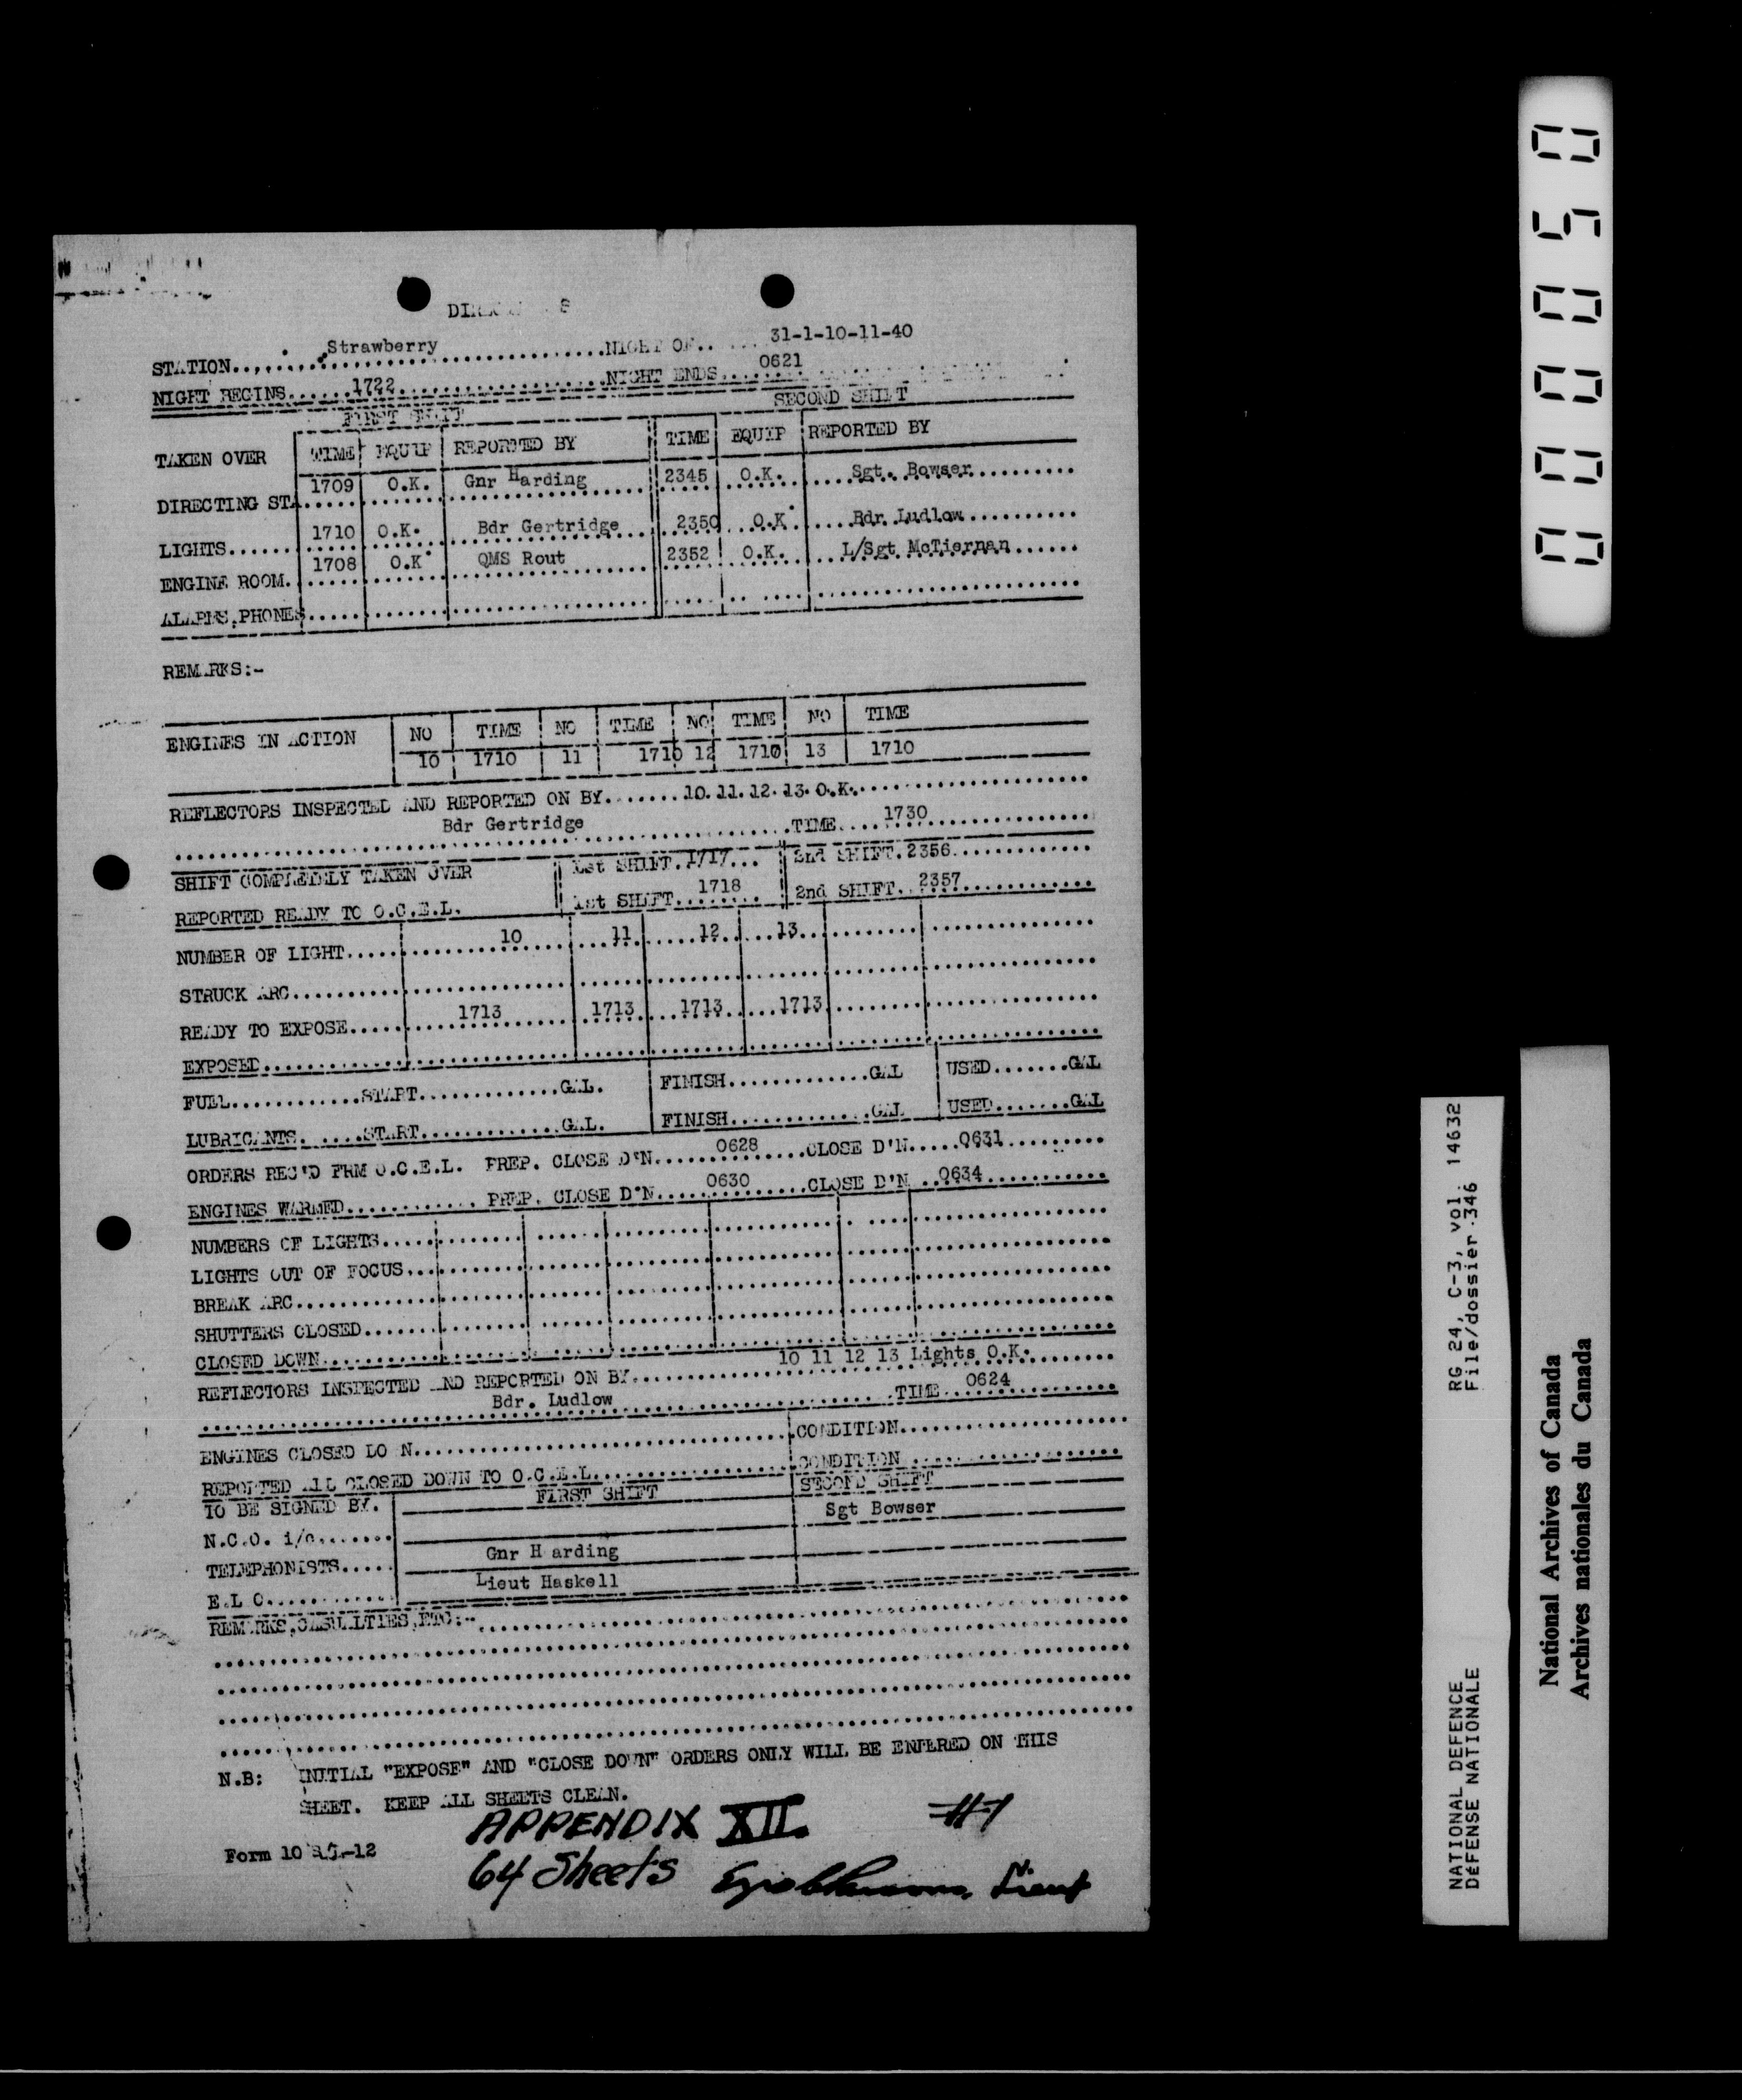 STATION....Strawberry....NIGHT OF....31-1-10-11-40
NIGHT BEGINS....1722....NIGHT ENDS....0621
FIRST SHIFT SECOND SHIFT
TAKEN OVER TIME EQUIP REPORTED BY TIME EQUIP REPORTED BY
DIRECTING STA. 1709 O.K. Gnr Harding 2345 O.K. Sgt. Bowser
LIGHTS...... 1710 O.K. Bdr Gertridge 2350 O.K. Bdr. Ludlow
ENGINE ROOM. 1708 O.K. QMS Rout 2352 O.K. L/Sgt McTiernan
ALARMS,PHONES
REMARKS:-
ENGINES IN ACTION NO TIME NO TIME NO TIME NO TIME
10 1710 11 1710 12 1710 13 1710
REFLECTORS INSPECTED AND REPORTED ON BY.......10.11.12.13.O.K.
Bdr Gertridge TIME....1730
SHIFT COMPLETELY TAKEN OVER 1st SHIFT.1717... 2nd SHIFT.2356
REPORTED READY TO O.C.E.L. 1st SHIFT 1718 2nd SHIFT..2357
NUMBER OF LIGHT.... 10 11 12 13
STRUCK ARC
READY TO EXPOSE.... 1713 1713 1713 1713
EXPOSED
FUEL............START.............GAL. FINISH.............GAL USED.......GAL
LUBRICANTS......START.............GAL. FINISH.............GAL USED.......GAL
ORDERS REC'D FRM O.C.E.L. PREP. CLOSE D'N......0628....CLOSE D'N.....0631
ENGINES WARNED............ PREP. CLOSE D'N.....0630.....CLOSE D'N ..0634
NUMBERS OF LIGHTS
LIGHTS OUT OF FOCUS
BREAK ARC
SHUTTERS CLOSED
CLOSED DOWN
REFLECTORS INSPECTED AND REPORTED ON BY....10 11 12 13 Lights O.K.
Bdr. Ludlow TIME..0624
ENGINES CLOSED DO N CONDITION
REPORTED ALL CLOSED DOWN TO O.C.E.L. CONDITION
TO BE SIGNED BY. FIRST SHIFT SECOND SHIFT
N.C.O. i/c....... Sgt Bowser
TELEPHONISTS..... Gnr H arding
E.L O............ Lieut Haskell
REMARKS,CASUALTIES,ETC:-
N.B: INITIAL "EXPOSE" AND "CLOSE DOWN" ORDERS ONLY WILL BE ENTERED ON THIS
SHEET. KEEP ALL SHEETS CLEAN.
APPENDIX XII. #1
64 Sheets Lieut
Form 10
000050
RG 24, C-3, vol. 14632
File/dossier 346
NATIONAL DEFENCE
DÉFENSE NATIONALE
National Archives of Canada
Archives nationales du Canada